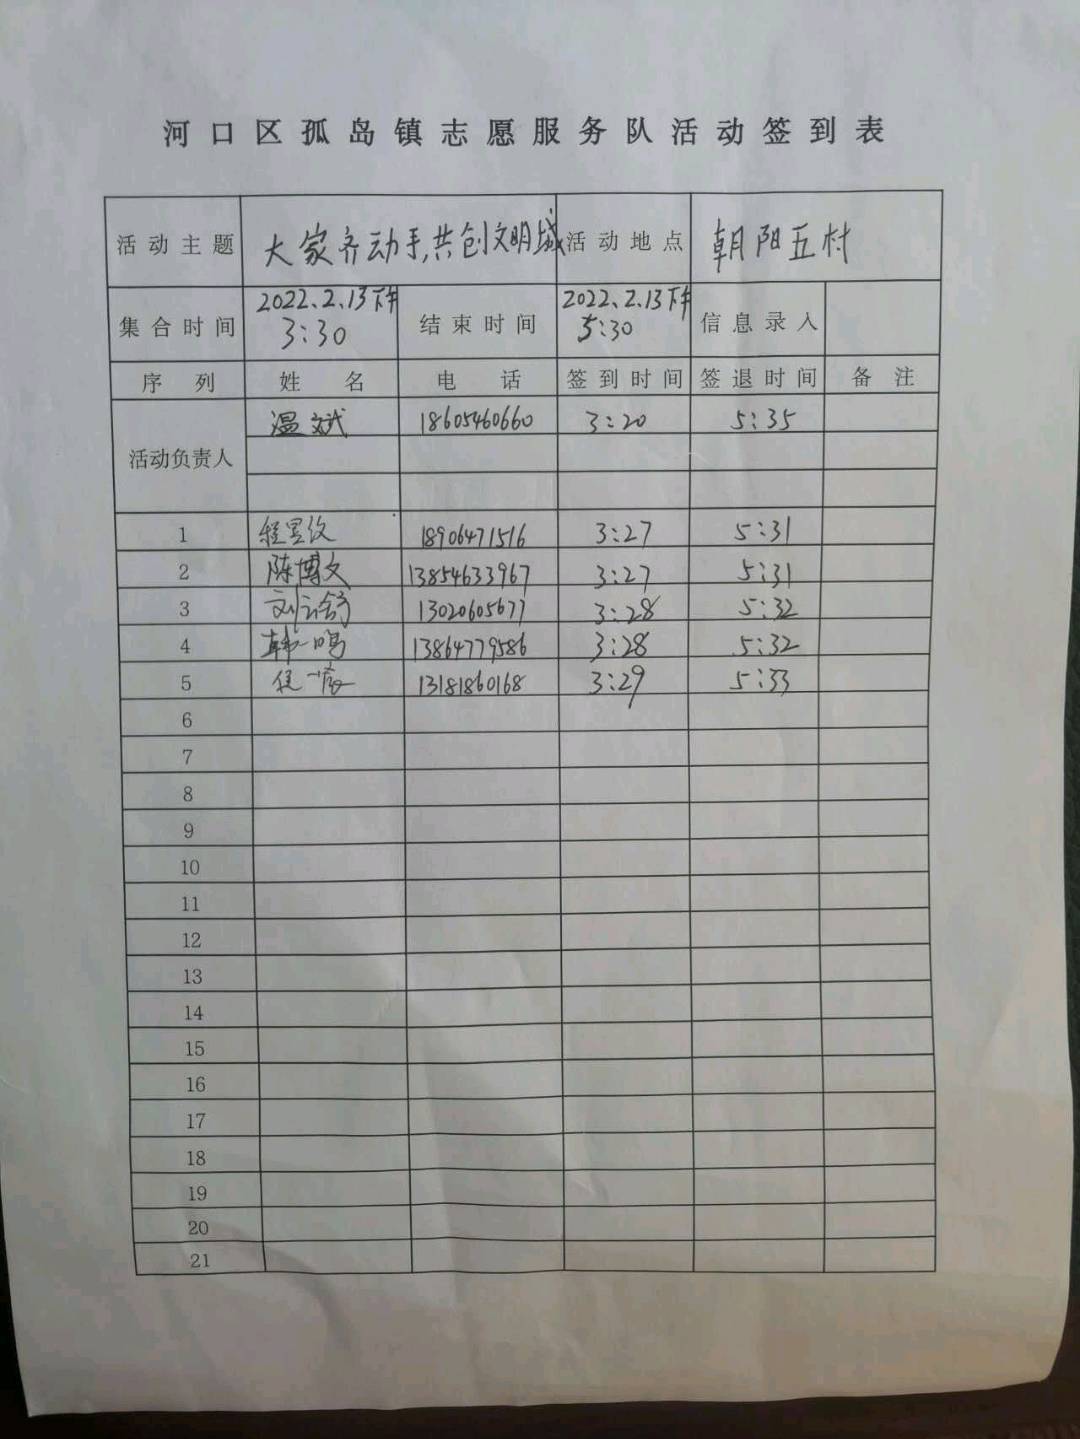 河口区孤岛镇志愿服务队活动签到表
活动主题 大家齐动手,共创文明城 活动地点 朝阳五村
集合时间 2022.2.13下午 3:30 结束时间 2022.2.13下午 5:30 信息录入
序列 姓名 电话 签到时间 签退时间 备注
活动负责人 温斌 18605460660 3:20 5:35
1 18906471516 3:27 5:31
2 陈博文 13854633967 3:27 5:31
3 13020605677 3:28 5:32
4 韩一鸣 13864779586 3:28 5:32
5 13181860168 3:29 5:33
6
7
8
9
10
11
12
13
14
15
16
17
18
19
20
21